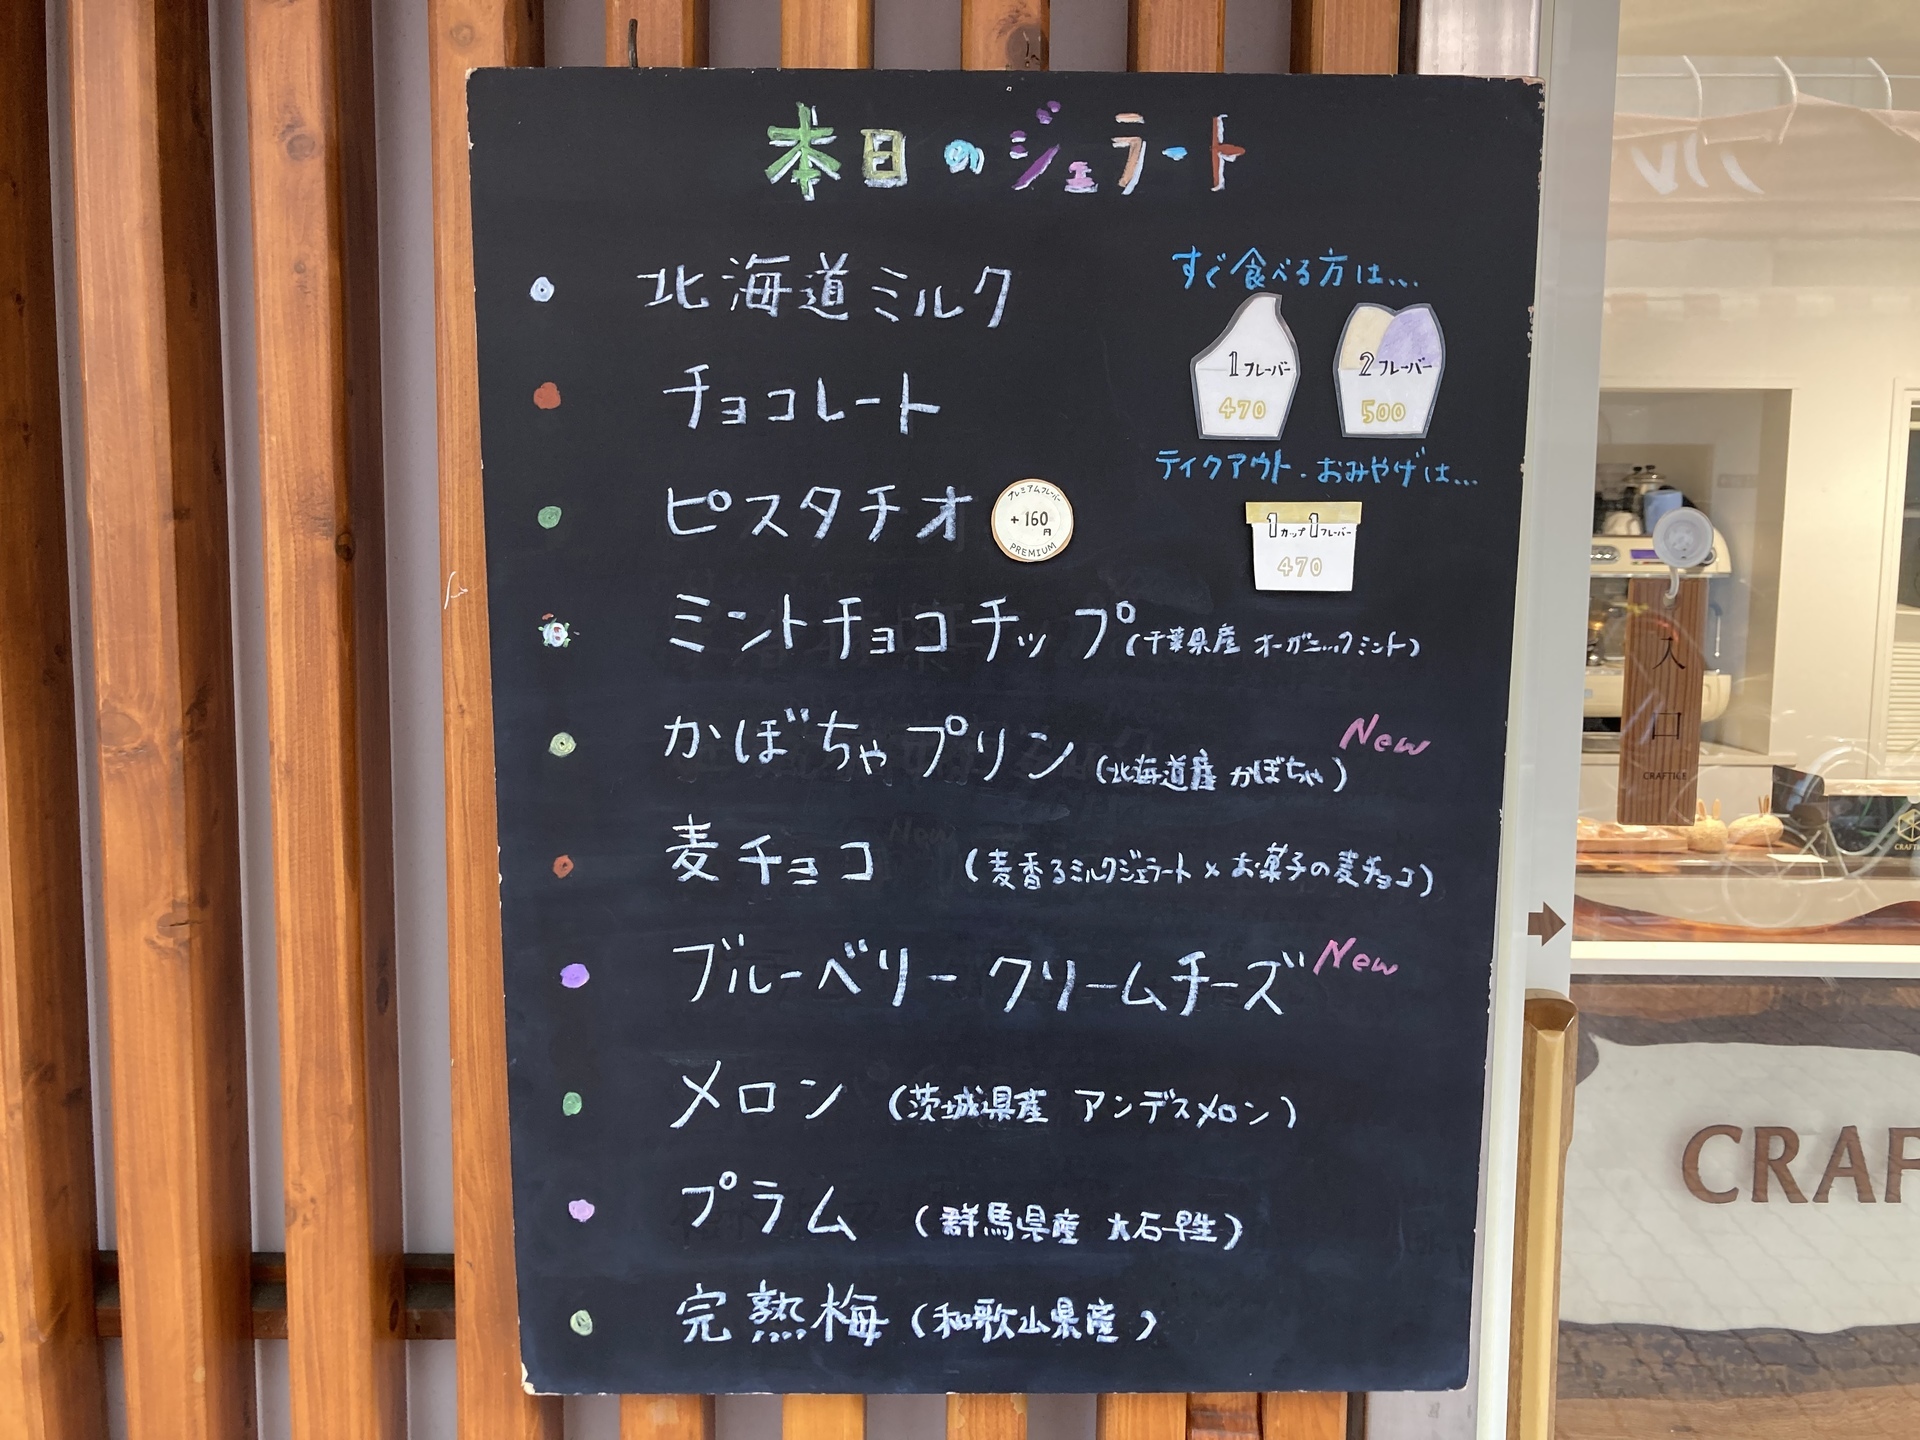 本日のジェラート
北海道ミルク
すぐ食べる方は...
1フレーバー
470
2フレーバー
500
チョコレート
テイクアウト・おみやげは...
ピスタチオ
プレミアムフレーバー
+160
円
PREMIUM
1カップ1フレーバー
470
ミントチョコチップ(千葉県産 オーガニックミント)
かぼちゃプリン(北海道産 かぼちゃ) New
麦チョコ (麦香るミルクジェラート×お菓子の麦チョコ)
ブルーベリークリームチーズ New
メロン (茨城県産 アンデスメロン)
プラム (群馬県産 大石早生)
完熟梅(和歌山県産)
入口
CRAFTICE
CRAF